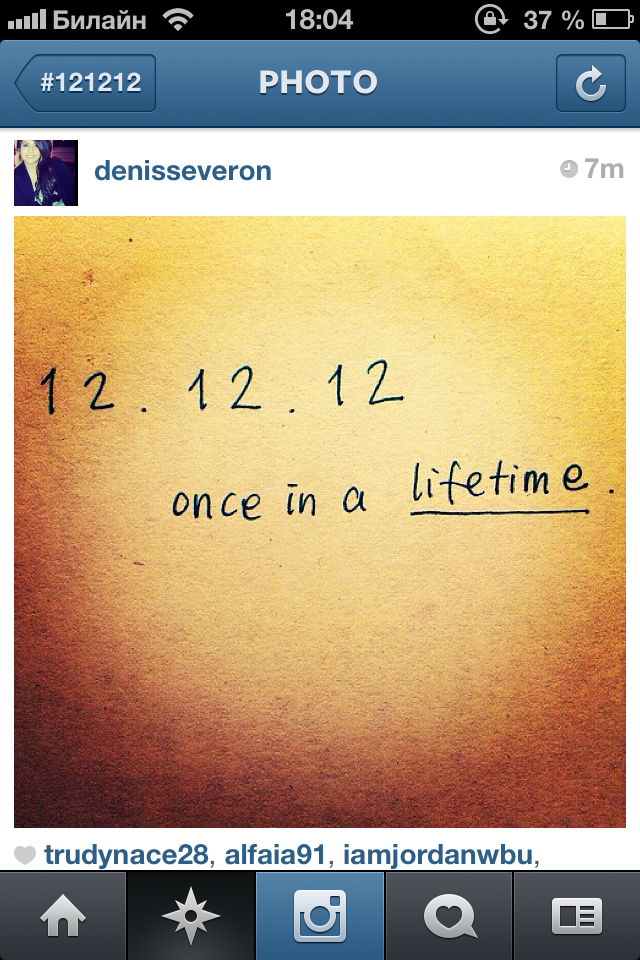 Билайн 18:04 37 %
#121212 PHOTO
denisseveron 7m
12.12.12
once in a lifetime.
trudynace28, alfaia91, iamjordanwbu,